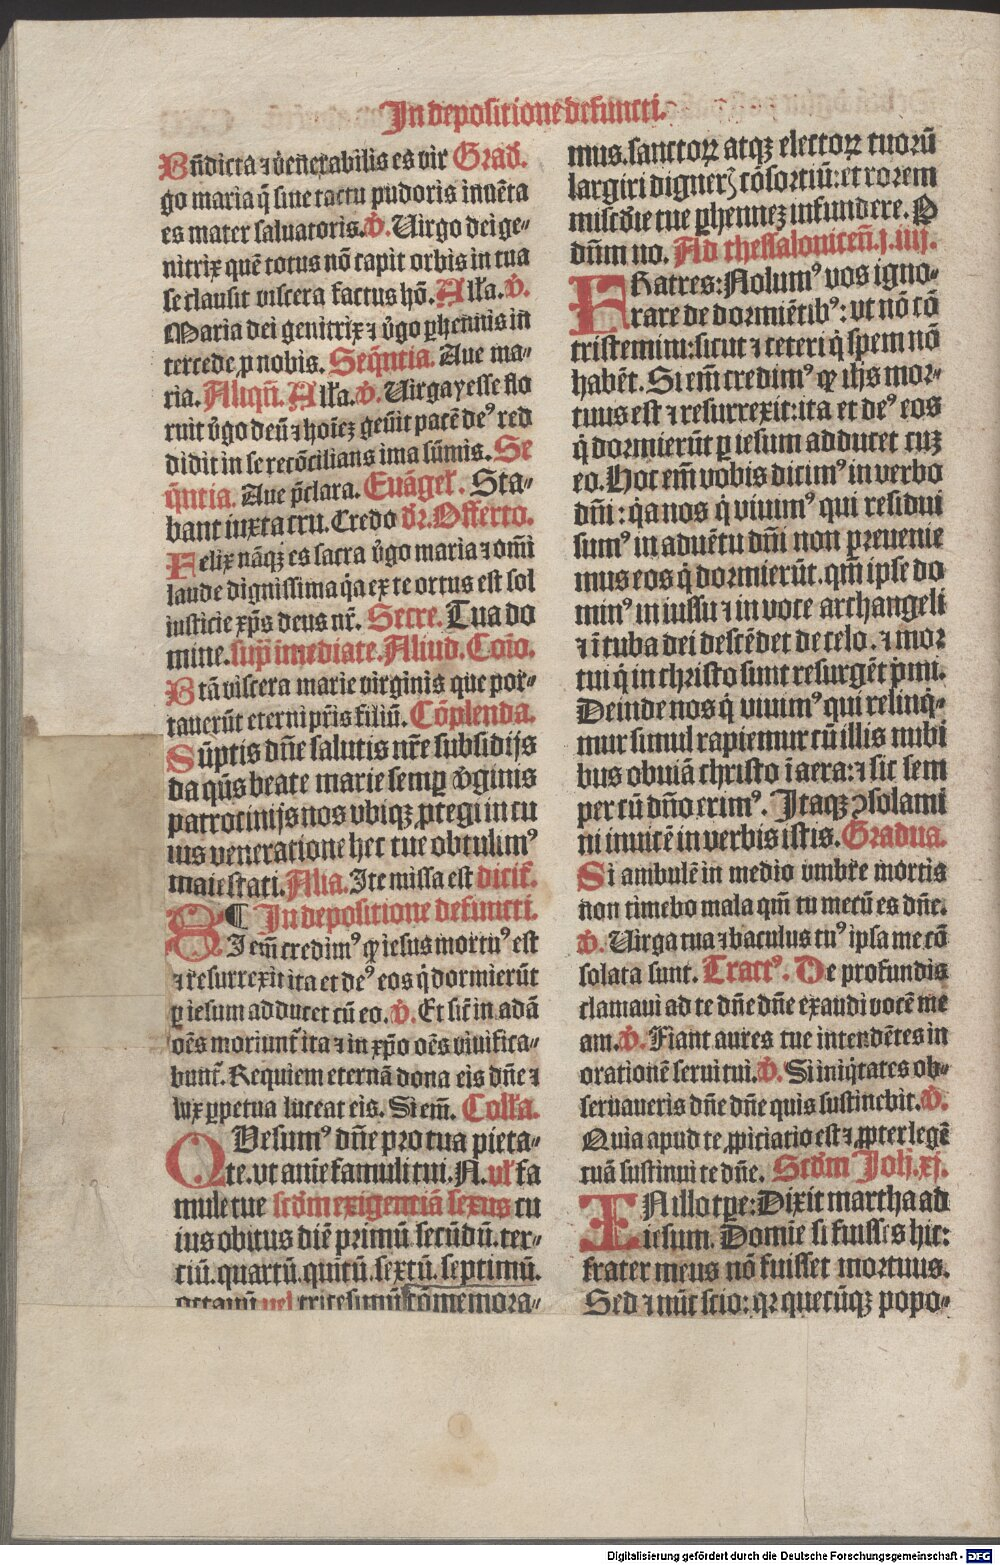 In depositione defuncti.
Bn̄dicta ⁊ v̓enerabilis es vir Grad̓.
go maria q̄ sine tactu pudoris inuēta
es mater saluatoris. v̓. Uirgo dei ge⸗
nitrix quē totus nō capit orbis in tua
se clausit viscera factus hō. Alła. v̓.
Maria dei genitrix ⁊ v̓go ꝑhennis in
tercede ꝓ nobis. Seq̄ntia. Aue ma⸗
ria. Aliqn̄. Alła. v̓. Uirga yesse flo
ruit v̓go deū ⁊ hoīeꝫ genuit pacē deꝰ red
didit in se recōcilians ima sūmis. Se
q̄ntia. Aue p̄clara. Euāgel̓. Sta⸗
bant iuxta cru. Credo dr̄. Offerto.
Felix nāqꝫ es sacra v̓go maria ⁊ om̄i
laude dignissima q̓a ex te ortus est sol
iusticie xp̄s deus nr̄. Secre. Tua do
mine. sup̄ imediate. Aliud. Cōio.
Btā viscera marie virginis que por⸗
tauerūt eterni pr̄is filiū. Cōplenda.
Sūptis dn̄e salutis nr̄e subsidijs
da q̄s beate marie semꝑ v̓ginis
patrocinijs nos vbiqꝫ ꝓtegi in cu
ius veneratione hec tue obtulimꝰ
maiestati. Alia. Ite missa est dicit̓.
¶ In depositione defuncti.
SI em̄ credimꝰ ꝙ iesus mortuꝰ est
⁊ resurrexit ita et deꝰ eos q̓ dormierūt
ꝑ iesum adducet cū eo. v̓. Et sic̄ in adā
oēs moriunt̓ ita ⁊ in xp̄o oēs viuifica⸗
bunt̓. Requiem eternā dona eis dn̄e ⁊
lux ꝑpetua luceat eis. Si em̄. Colła.
QUesumꝰ dn̄e pro tua pieta⸗
te. vt anīe famuli tui. N. vl̓ fa
mule tue scd̓m exigentiā sexus cu
ius obitus diē primū secūdū. ter⸗
ciū. quartū. quītū. sextū. septimū.
octauū vel tricesimū cōmemora⸗
mus. sanctoꝝ atqꝫ electoꝝ tuorū
largiri digneꝝ cōsortiū: et rorem
mīscd̓ie tue ꝑhenneꝫ infundere. P
dn̄m no. Ad thessalonicen̄. j. iiij.
FRatres: Nolumꝰ vos igno⸗
rare de dormiētibꝰ: vt nō cō
tristemini: sicut ⁊ ceteri q̓ spem nō
habēt. Si em̄ credimꝰ ꝙ ih̄s mor⸗
tuus est ⁊ resurrexit: ita et deꝰ eos
q̓ dormierūt ꝑ iesum adducet cuꝫ
eo. Hoc em̄ vobis dicimꝰ in verbo
dn̄i: q̓a nos q̓ viuimꝰ qui residui
sumꝰ in aduētu dn̄i non p̄uenie
mus eos q̓ dormierūt. qm̄ ipse do
minꝰ in iussu ⁊ in voce archangeli
⁊ ī tuba dei descēdet de celo. ⁊ mor
tui q̓ in christo sunt resurgēt p̓mi.
Deinde nos q̓ viuimꝰ qui relinq̓⸗
mur simul rapiemur cū illis in nubi
bus obuiā christo ī aera: ⁊ sic sem
per cū dn̄o erimꝰ. Itaqꝫ ↄsolami
ni inuicē in verbis istis. Gradua.
Si ambulē in medio vmbre mortis
non timebo mala qm̄ tu mecū es dn̄e.
v̓. Uirga tua ⁊ baculus tuꝰ ipsa me cō
solata sunt. Tractꝰ. De profundis
clamaui ad te dn̄e dn̄e exaudi vocē me
am. v̓. Fiant aures tue intendētes in
orationē serui tui. v̓. Si iniq̓tates ob⸗
seruaueris dn̄e dn̄e quis sustinebit. v̓.
Quia apud te ꝓpiciatio est ⁊ ꝓpter legē
tuā sustinui te dn̄e. Scd̓m Joh. xj.
IN illo tꝑe: Dixit martha ad
iesum. Domīe si fuisses hic:
frater meus nō fuisset mortuus.
Sed ⁊ nūc scio: qꝛ quecūqꝫ popo⸗
Digitalisierung gefördert durch die Deutsche Forschungsgemeinschaft - DFG